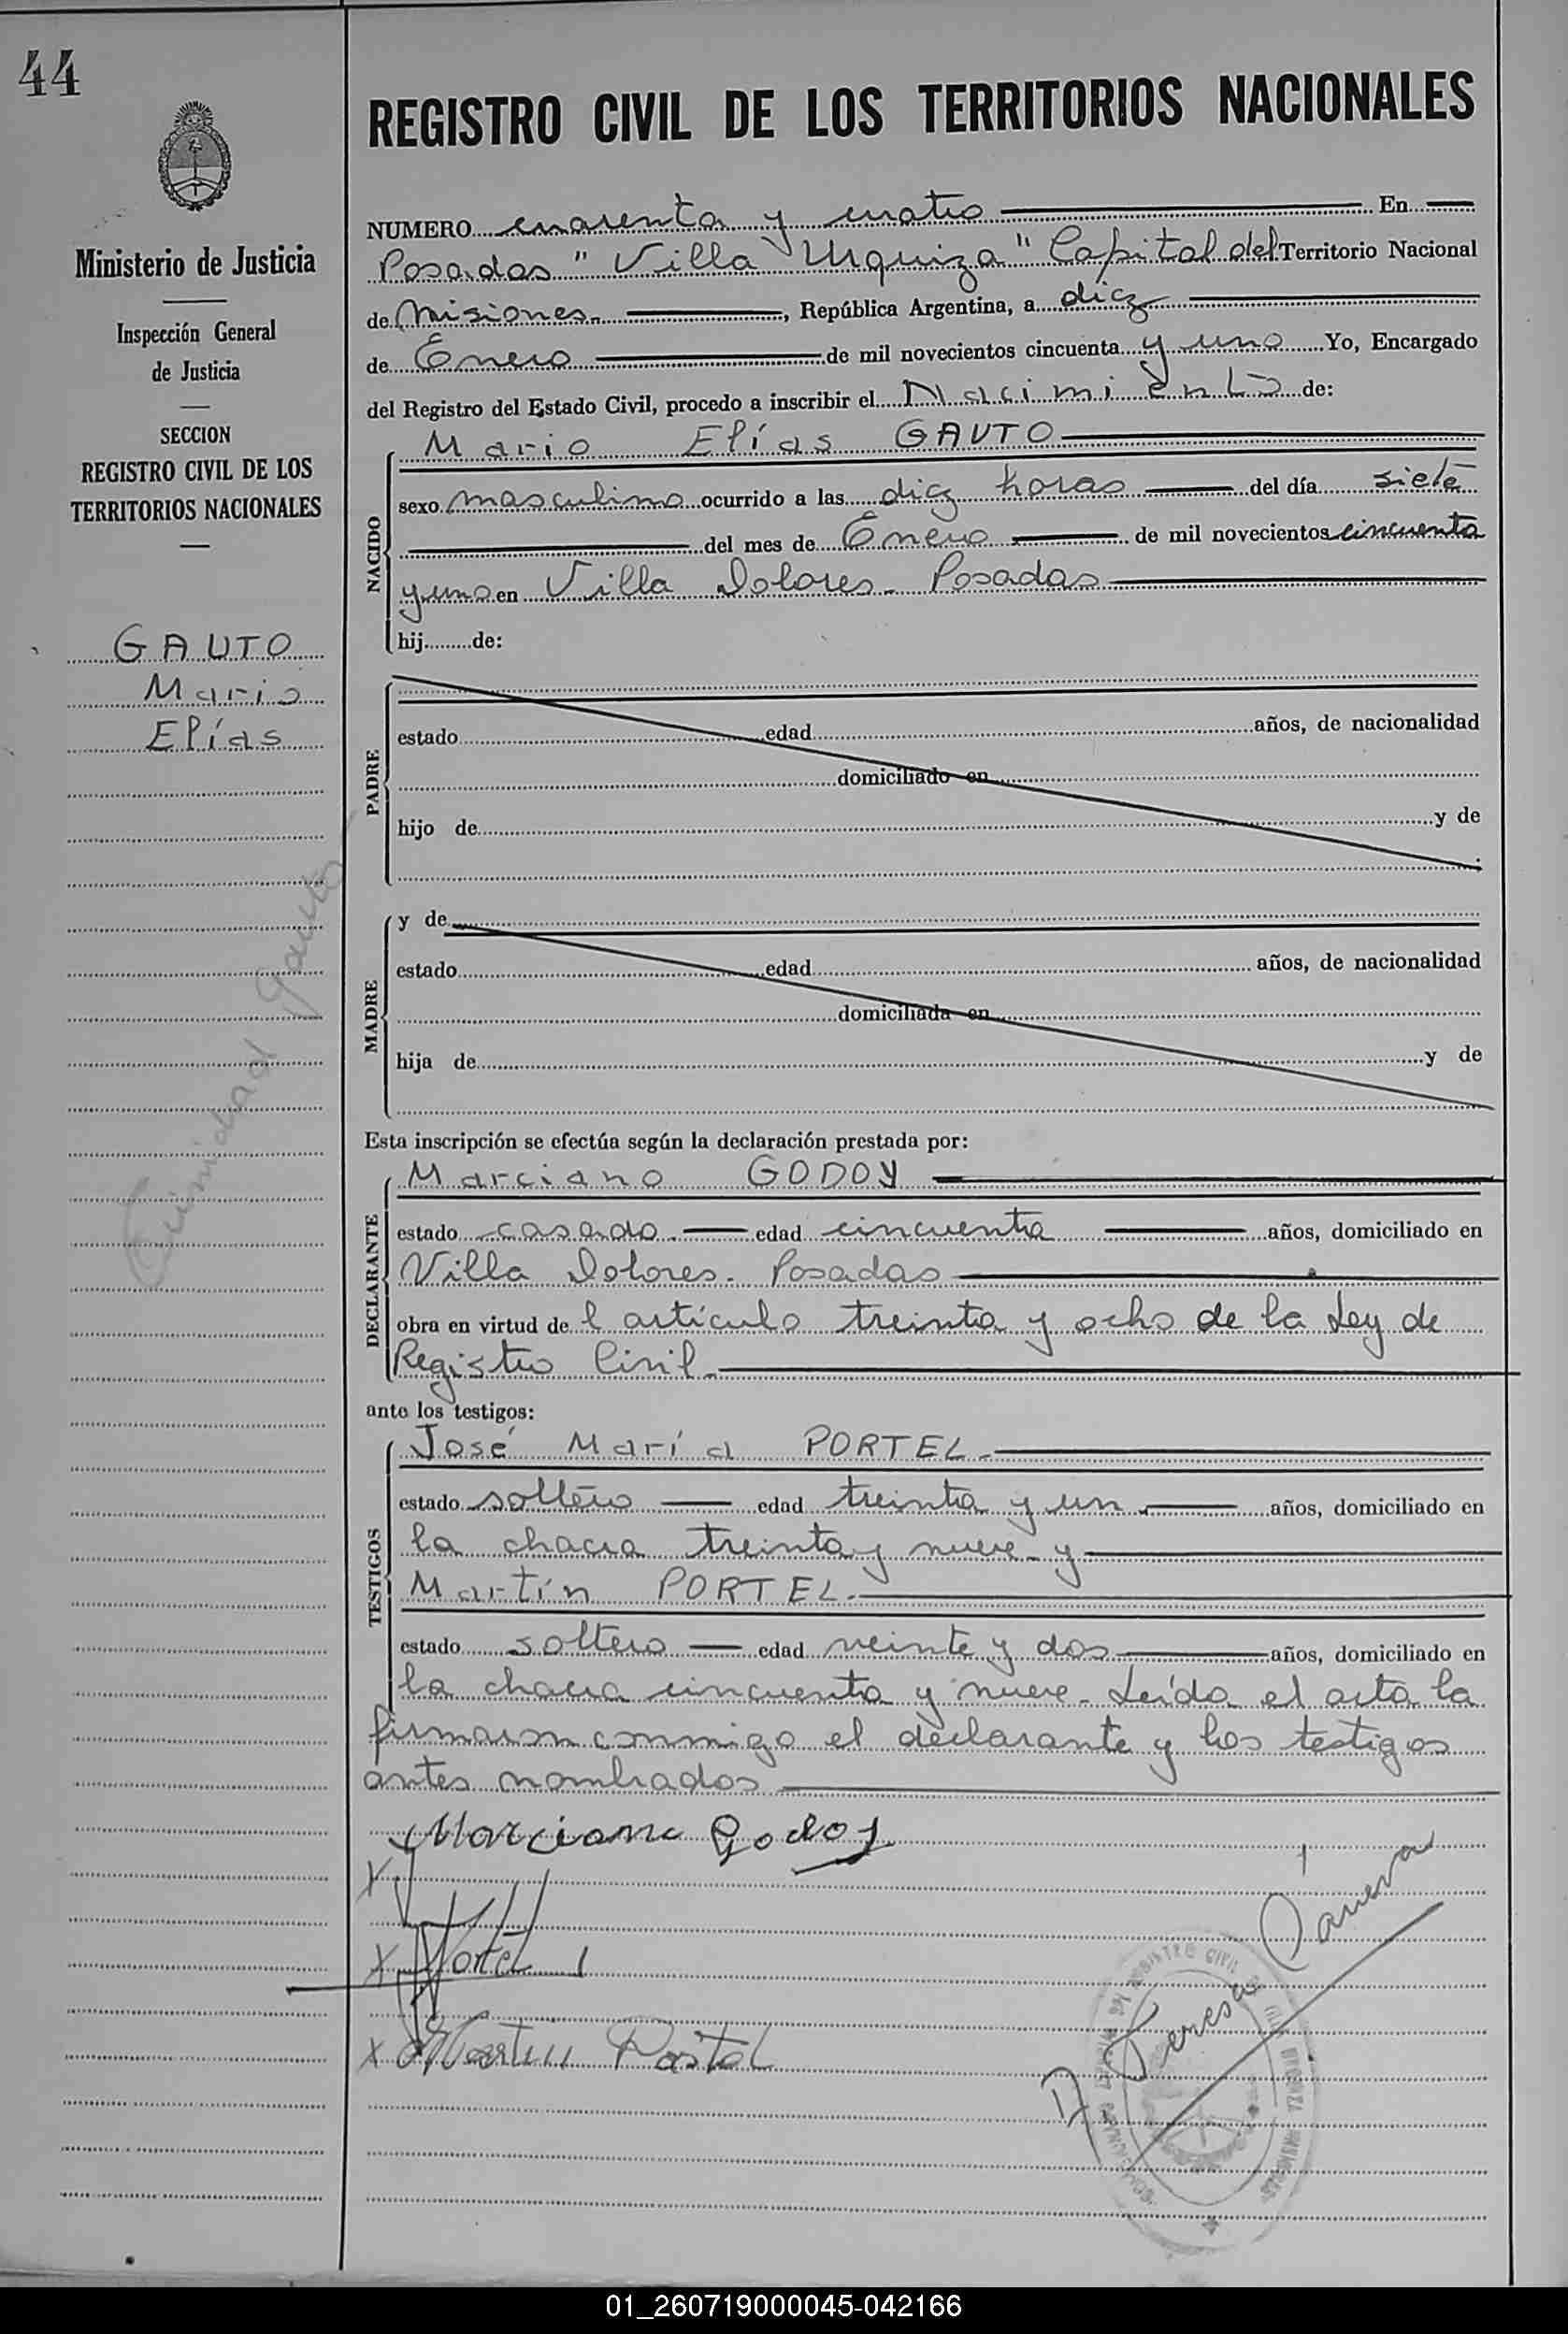 44
Ministerio de Justicia
Inspección General
de Justicia
SECCION
REGISTRO CIVIL DE LOS
TERRITORIOS NACIONALES
GAUTO
Mario
Elías
Trinidad Gauto
REGISTRO CIVIL DE LOS TERRITORIOS NACIONALES
NUMERO cuarenta y cuatro En
Posadas "Villa Urquiza" Capital del Territorio Nacional
de Misiones, República Argentina, a diez
de Enero de mil novecientos cincuenta y uno Yo, Encargado
del Registro del Estado Civil, procedo a inscribir el Nacimiento de:
Mario Elías GAUTO
NACIDO
sexo masculino ocurrido a las diez horas del día siete
del mes de Enero de mil novecientos cincuenta
y uno en Villa Dolores - Posadas
hij de:
PADRE
estado edad años, de nacionalidad
domiciliado en
hijo de y de
MADRE
y de
estado edad años, de nacionalidad
domiciliada en
hija de y de
Esta inscripción se efectúa según la declaración prestada por:
DECLARANTE
Marciano GODOY
estado casado. edad cincuenta años, domiciliado en
Villa Dolores. Posadas
obra en virtud de l artículo treinta y ocho de la Ley de
Registro Civil.
ante los testigos:
TESTIGOS
José María PORTEL.
estado soltero edad treinta y un años, domiciliado en
la chacra treinta y nueve - y
Martín PORTEL.
estado soltero edad veinte y dos años, domiciliado en
la chacra cincuenta y nueve - Leída el acta la
firmaron conmigo el declarante y los testigos
antes nombrados
Marciano Godoy
X
X Portel
X Martin Portel
Teresa
REGISTRO CIVIL
01_260719000045-042166